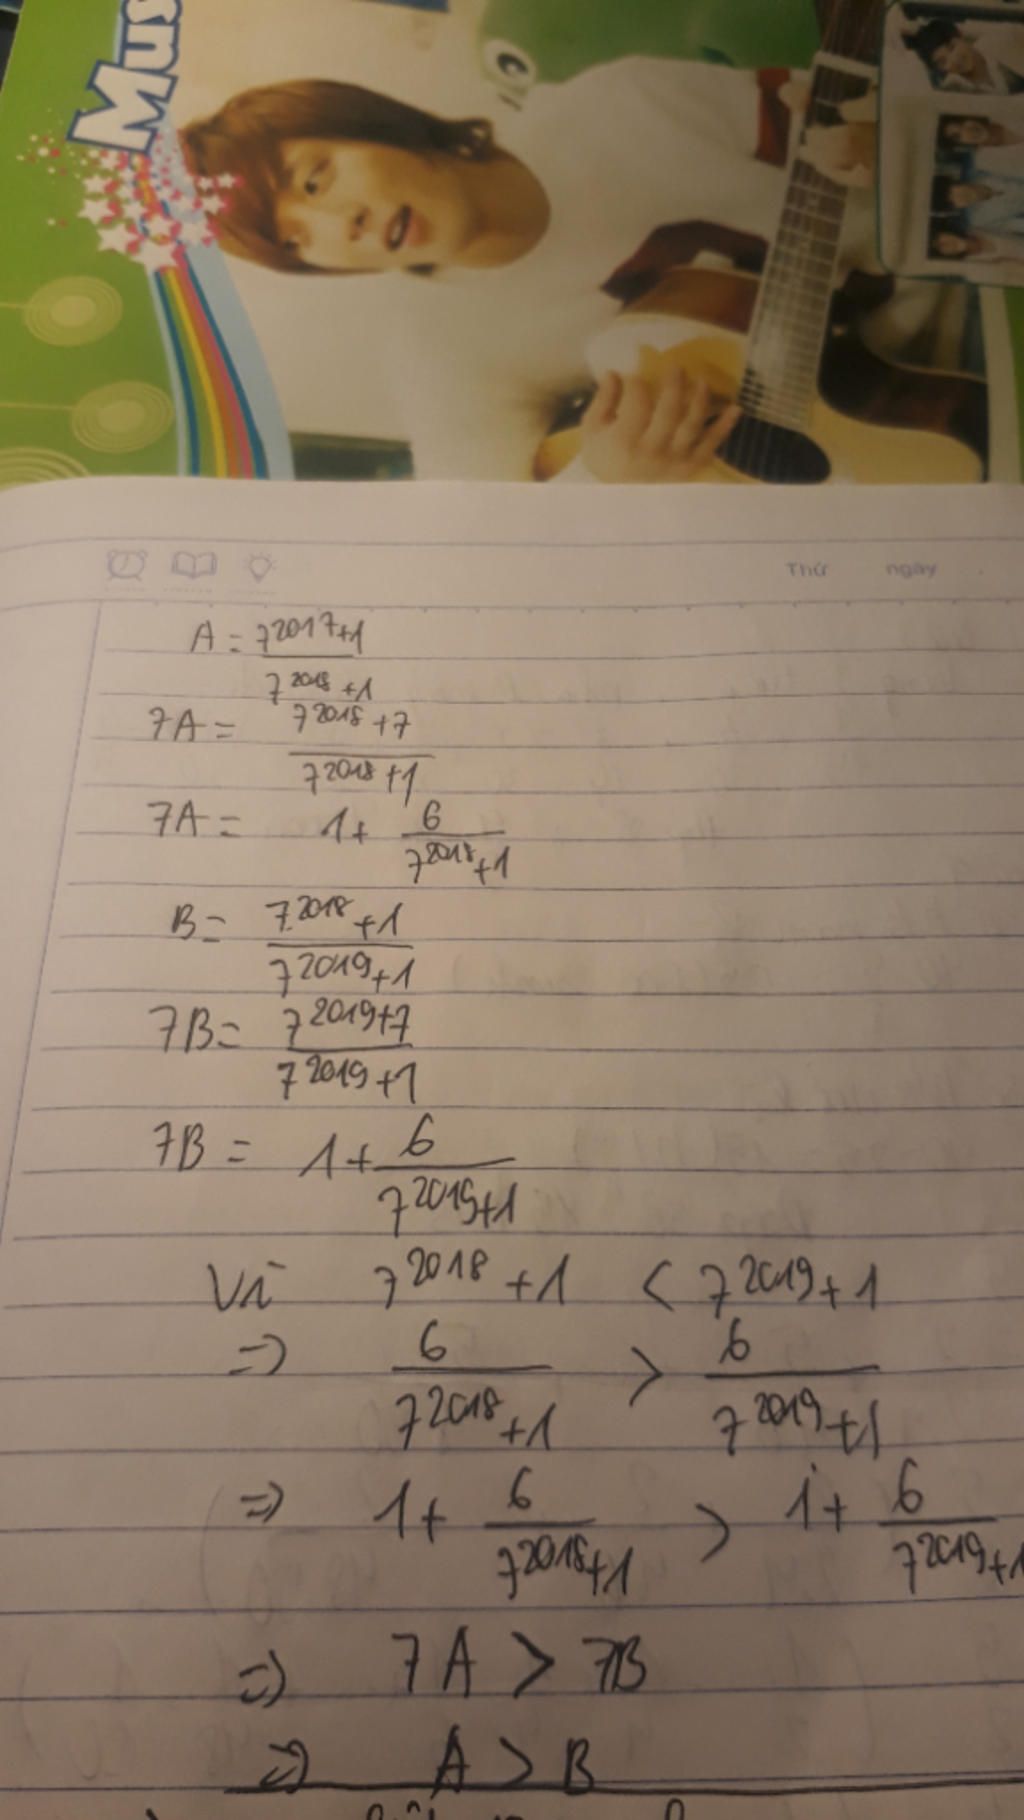 Mus
Thứ ngày
A = \frac{7^{2017}+1}{7^{2018}+1}
7A = \frac{7^{2018}+7}{7^{2018}+1}
7A = 1 + \frac{6}{7^{2018}+1}
B = \frac{7^{2018}+1}{7^{2019}+1}
7B = \frac{7^{2019}+7}{7^{2019}+1}
7B = 1 + \frac{6}{7^{2019}+1}
Vì 7^{2018}+1 < 7^{2019}+1
=> \frac{6}{7^{2018}+1} > \frac{6}{7^{2019}+1}
=> 1 + \frac{6}{7^{2018}+1} > 1 + \frac{6}{7^{2019}+1}
=> 7A > 7B
=> A > B